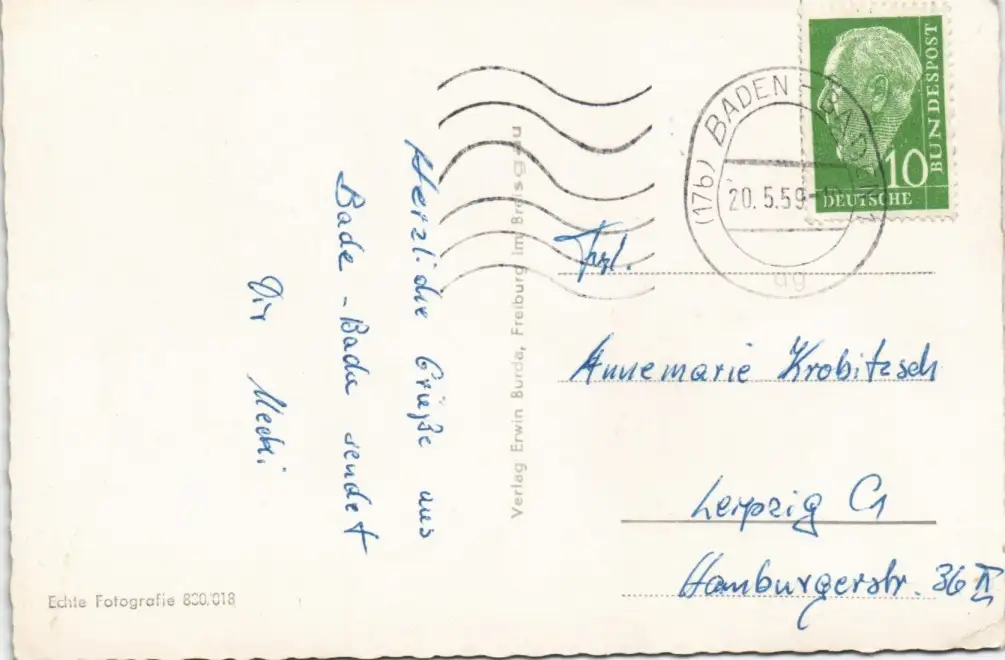 Herzliche Grüße aus
Bade-Bada sendet
Dir Mecki
Verlag Erwin Burda, Freiburg im Breisgau
Echte Fotografie 800/018
(17b) BADEN-BADEN
20.5.59
ag
BUNDESPOST
10
DEUTSCHE
Frl.
Annemarie Krobitzsch
Leipzig C1
Hamburgerstr. 36 II